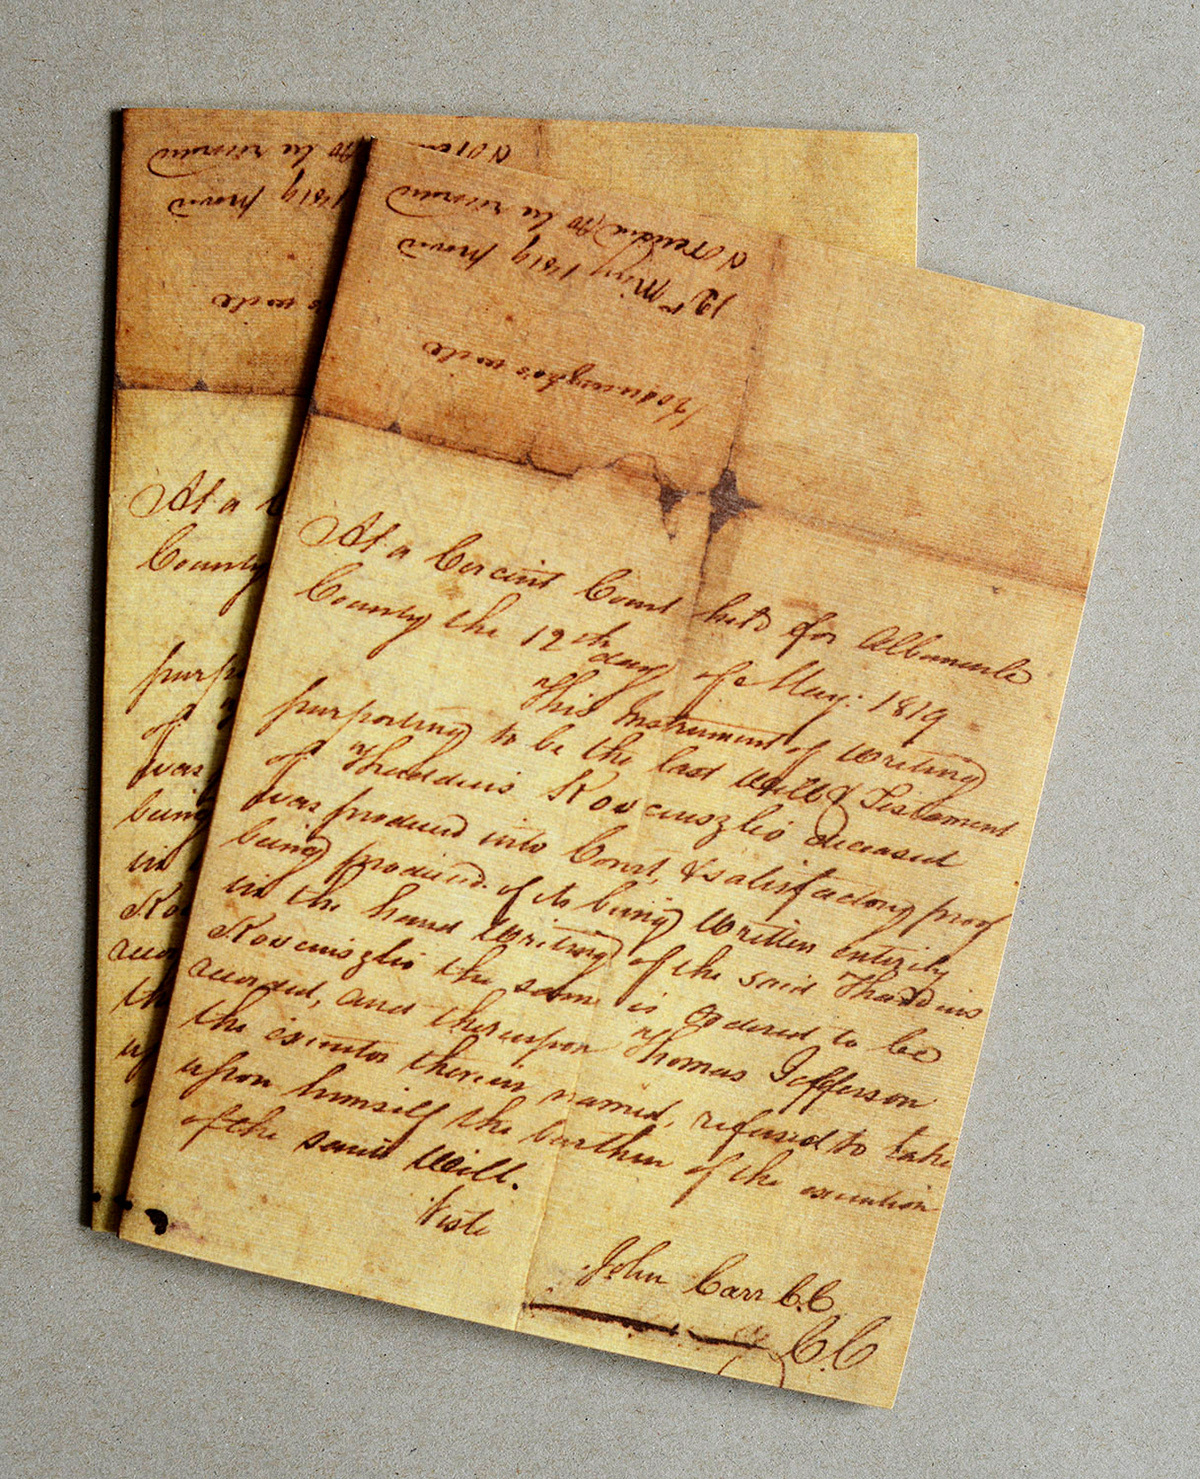 Kosciuszko's will
12th May 1819 proved
& ordered to be recorded
At a Cercuit Court held for Albemarle
County the 12th day of May: 1819
This Instrument of writing
purporting to be the last Will & Testament
of Thaddeus Kosciuszko deceased
was produced into Court, & satisfactory proof
being produced of its being written entirely
in the hand Writing of the said Thaddeus
Kosciuszko the same is ordered to be
recorded, and thereupon Thomas Jefferson
the executor therein named, refused to take
upon himself the burthen of the execution
of the said Will.
Teste
John Carr C.C.
C.C
At a
County
purp
of
was
being
in
Ko
recor
the
up